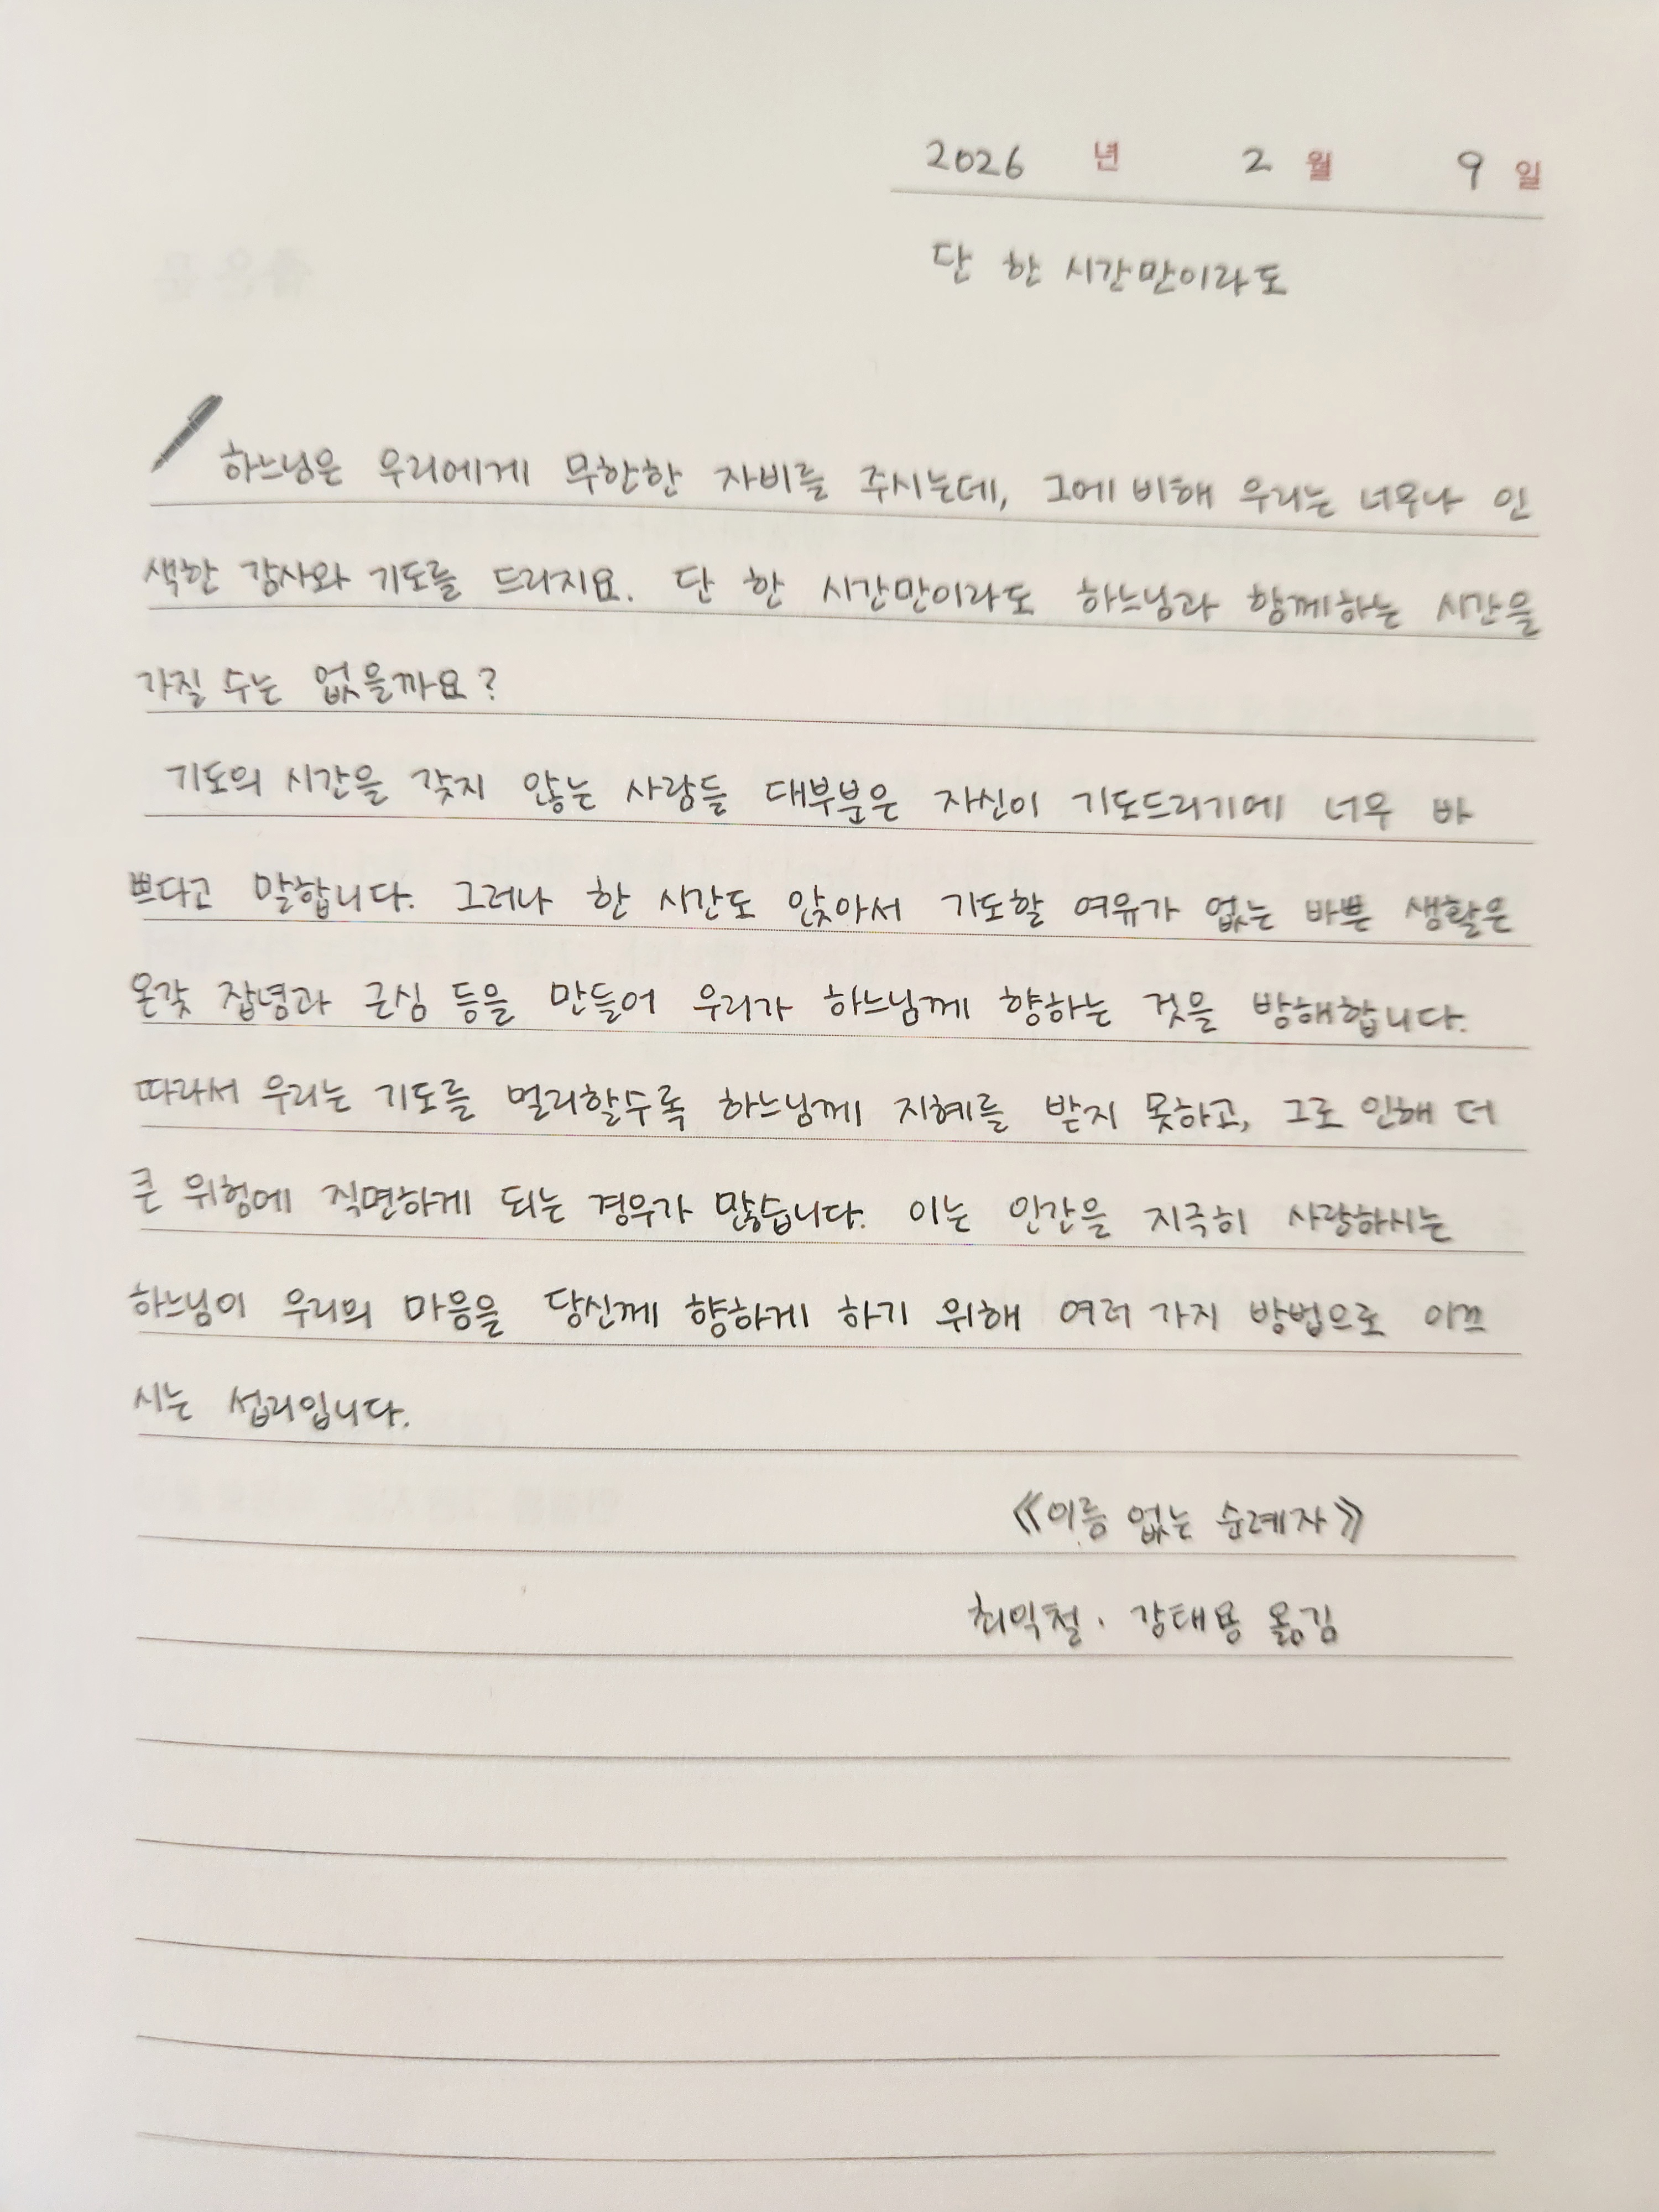 2026 년 2 월 9 일
단 한 시간만이라도
하느님은 우리에게 무한한 자비를 주시는데, 그에 비해 우리는 너무나 인
색한 감사와 기도를 드리지요. 단 한 시간만이라도 하느님과 함께하는 시간을
가질 수는 없을까요?
기도의 시간을 갖지 않는 사람들 대부분은 자신이 기도드리기에 너무 바
쁘다고 말합니다. 그러나 한 시간도 앉아서 기도할 여유가 없는 바쁜 생활은
온갖 잡념과 근심 등을 만들어 우리가 하느님께 향하는 것을 방해합니다.
따라서 우리는 기도를 멀리할수록 하느님께 지혜를 받지 못하고, 그로 인해 더
큰 위험에 직면하게 되는 경우가 많습니다. 이는 인간을 지극히 사랑하시는
하느님이 우리의 마음을 당신께 향하게 하기 위해 여러 가지 방법으로 이끄
시는 섭리입니다.
《이름 없는 순례자》
최익철· 강태용 옮김